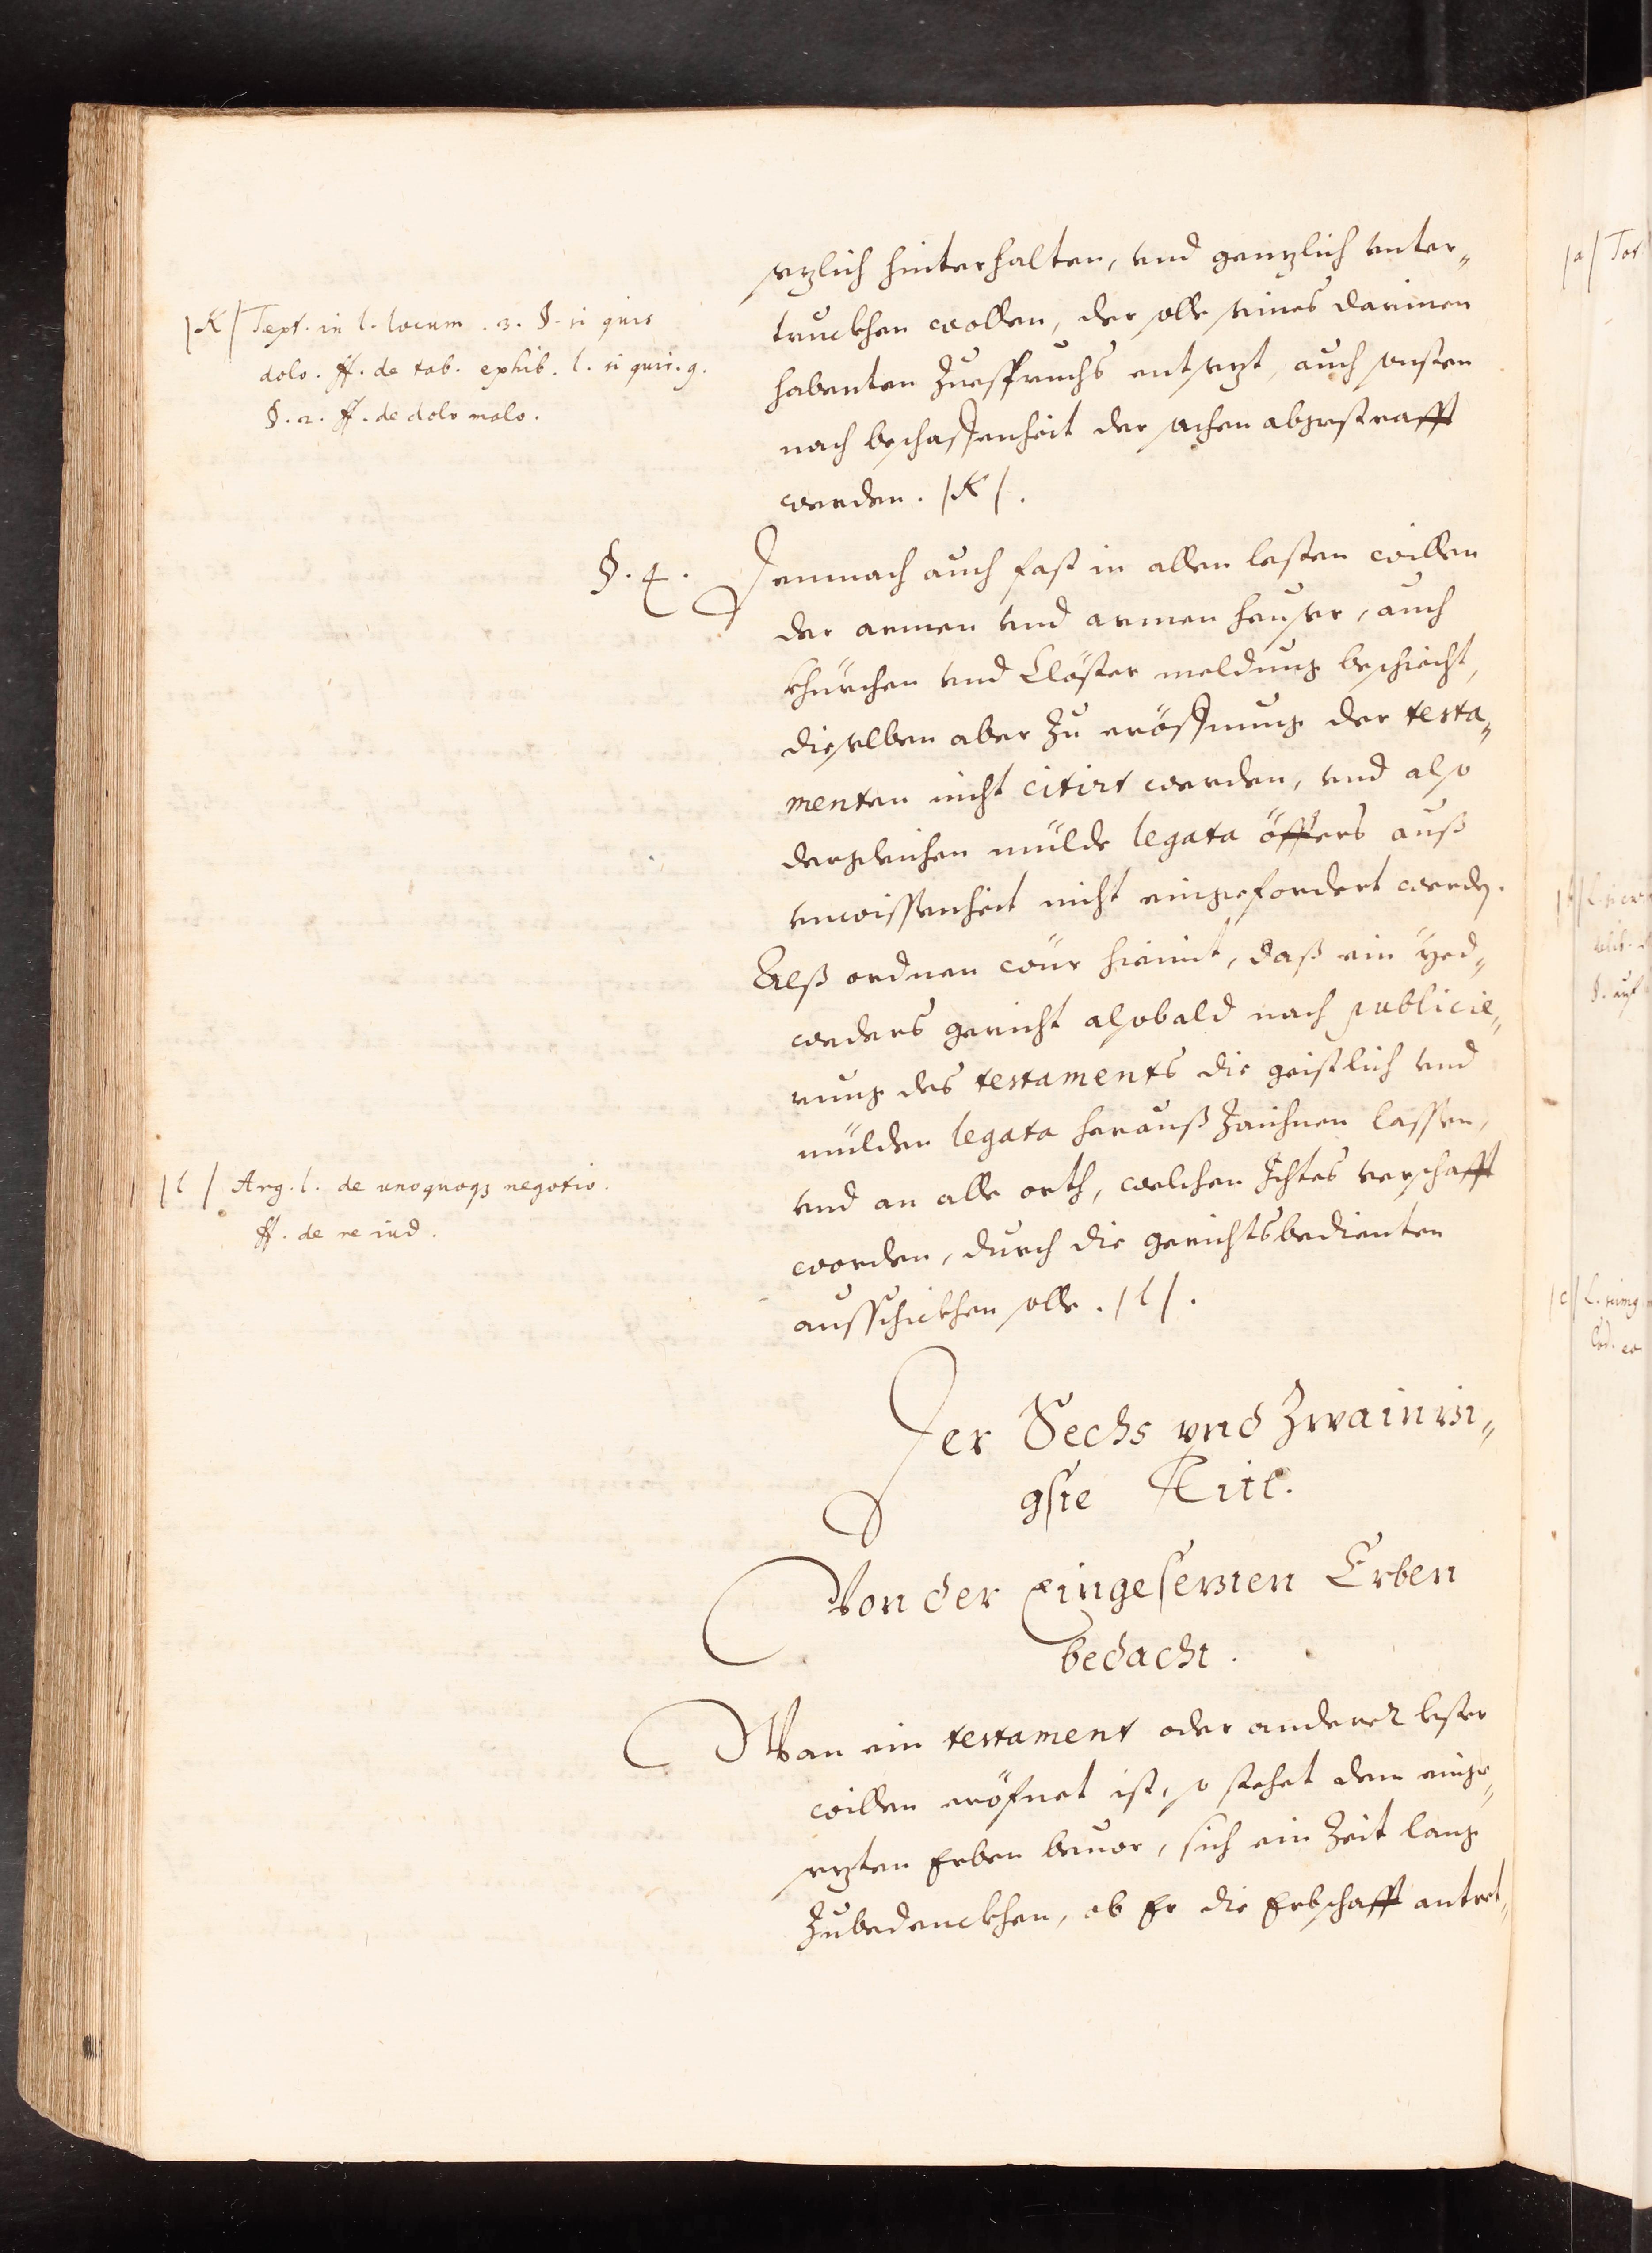 sezlich hinterhalten, vnd genzlich vnter„
truckhen wollen, der solle seines darinnen
habenten Zuespruchs entsezt, auch sonsten
nach beschaffenheit der sachen abgestrafft
werden. /K/.
/K/ Text. in l. locum. 3. §. si quis
dolo. ff. de tab. exhib. l. si quis. 9.
§. 2. ff. de dolo malo.
§. 4. Demnach auch fast in allen lesten willen
der armen vnd armen heuser, auch
khürchen vnd Clöster meldung beschicht,
dieselben aber zu eröffnung der testa„
menten nicht citirt werden, vnd also
dergleichen mülde legata öffters auß
vnwissenheit nicht eingefordert werden.
Alß ordnen wür hiemit, daß ein yed„
weders gericht alsobald nach publicie„
rung des testaments die geistlich vnd
mülden legata herauß zaichnen lassen,
vnd an alle orth, welchen Ichtes verschafft
worden, durch die gerichtsbedienten
ausschickhen solle. /l/.
/l/ Arg. l. de unoquoqz negotio.
ff. de re iud.
Der Sechs vnd Zwainzi„
gste Titl.
Von der Eingesezten Erben
bedacht.
Wan ein testament oder anderer lester
willen eröfnet ist, so stehet dem einge„
sezten Erben beuor, sich ein Zeit lang
Zubedenckhen, ob Er die Erbschafft antret„